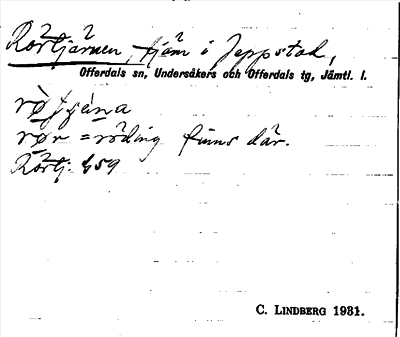 Rörtjärnen, tjärn i Jeppstad,
Offerdals sn, Undersåkers och Offerdals tg, Jämtl. l.
rø̀tjæ̀na
rør = röding finns där.
Rörtj. 459
C. LINDBERG 1931.